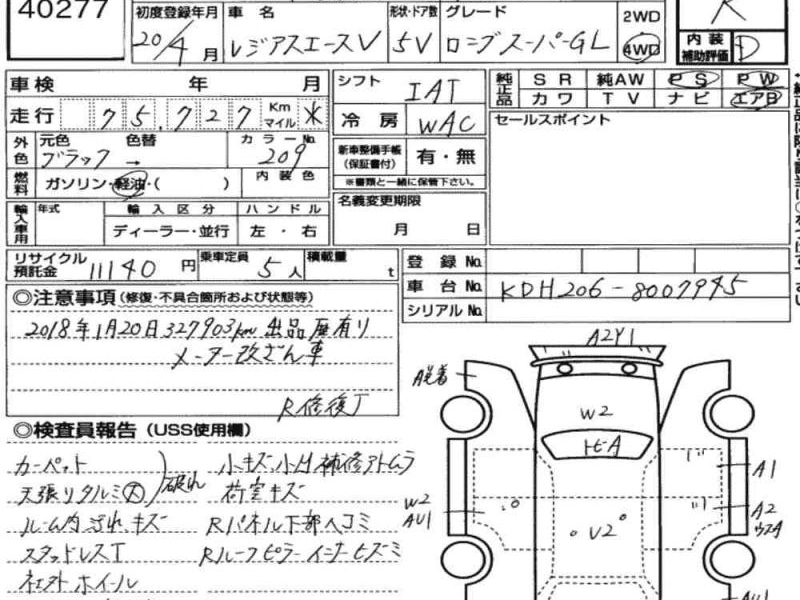 40277
初度登録年月 車名 形状・ドア数 グレード 2WD
20/4月 レジアスエースV 5V ロングスーパーGL 4WD
R
内装補助評価 D
車検 年 月 シフト IAT
純正品 SR 純AW PS PW
カワ TV ナビ エアB
走行 75,727 Km マイル ※
冷房 WAC
セールスポイント
外色 元色 色替 カラーNo.
ブラック → 209
新車整備手帳(保証書付) 有・無
※書類と一緒に保管下さい。
燃料 ガソリン・軽油・( ) 内装色
輸入車用 年式 輸入区分 ハンドル
ディーラー・並行 左・右
名義変更期限
月 日
リサイクル預託金 11140円 乗車定員 5人 積載量 t
登録No.
車台No. KDH206-8007945
シリアルNo.
◎注意事項(修復・不具合箇所および状態等)
2018年1月20日327903km 出品歴有り
メーター改ざん車
R修復歴
◎検査員報告(USS使用欄)
カーペット
天張りタルミ大
破れ
ルーム内汚れキズ
スタッドレスT
社外ホイール
小キズ小凹補修アトムラ
荷室キズ
Rパネル下部ヘコミ
Rルーフピラーインナーヒズミ
A2Y1
W2
トビA
A1
W2
AU1
A2
U2
AU1